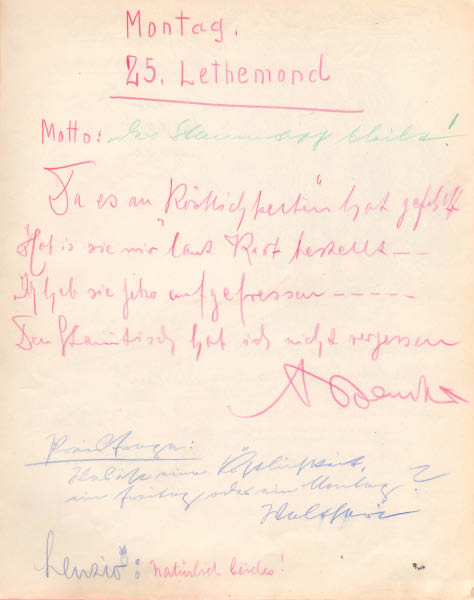 Montag.
25. Lethemond
Motto: Der Stammtisch bleibt!
Da es an "Köstlichkeiten" hat gefehlt
Hat is sie mir "laut Kart bestellt --
Ich hab sie aufgefressen -----
Den Stamtisch hab ich nicht vergessen
Preisfrage:
eine Köstlichkeit,
ein Freitag oder ein Montag?
Lenzio: Natürlich beides!